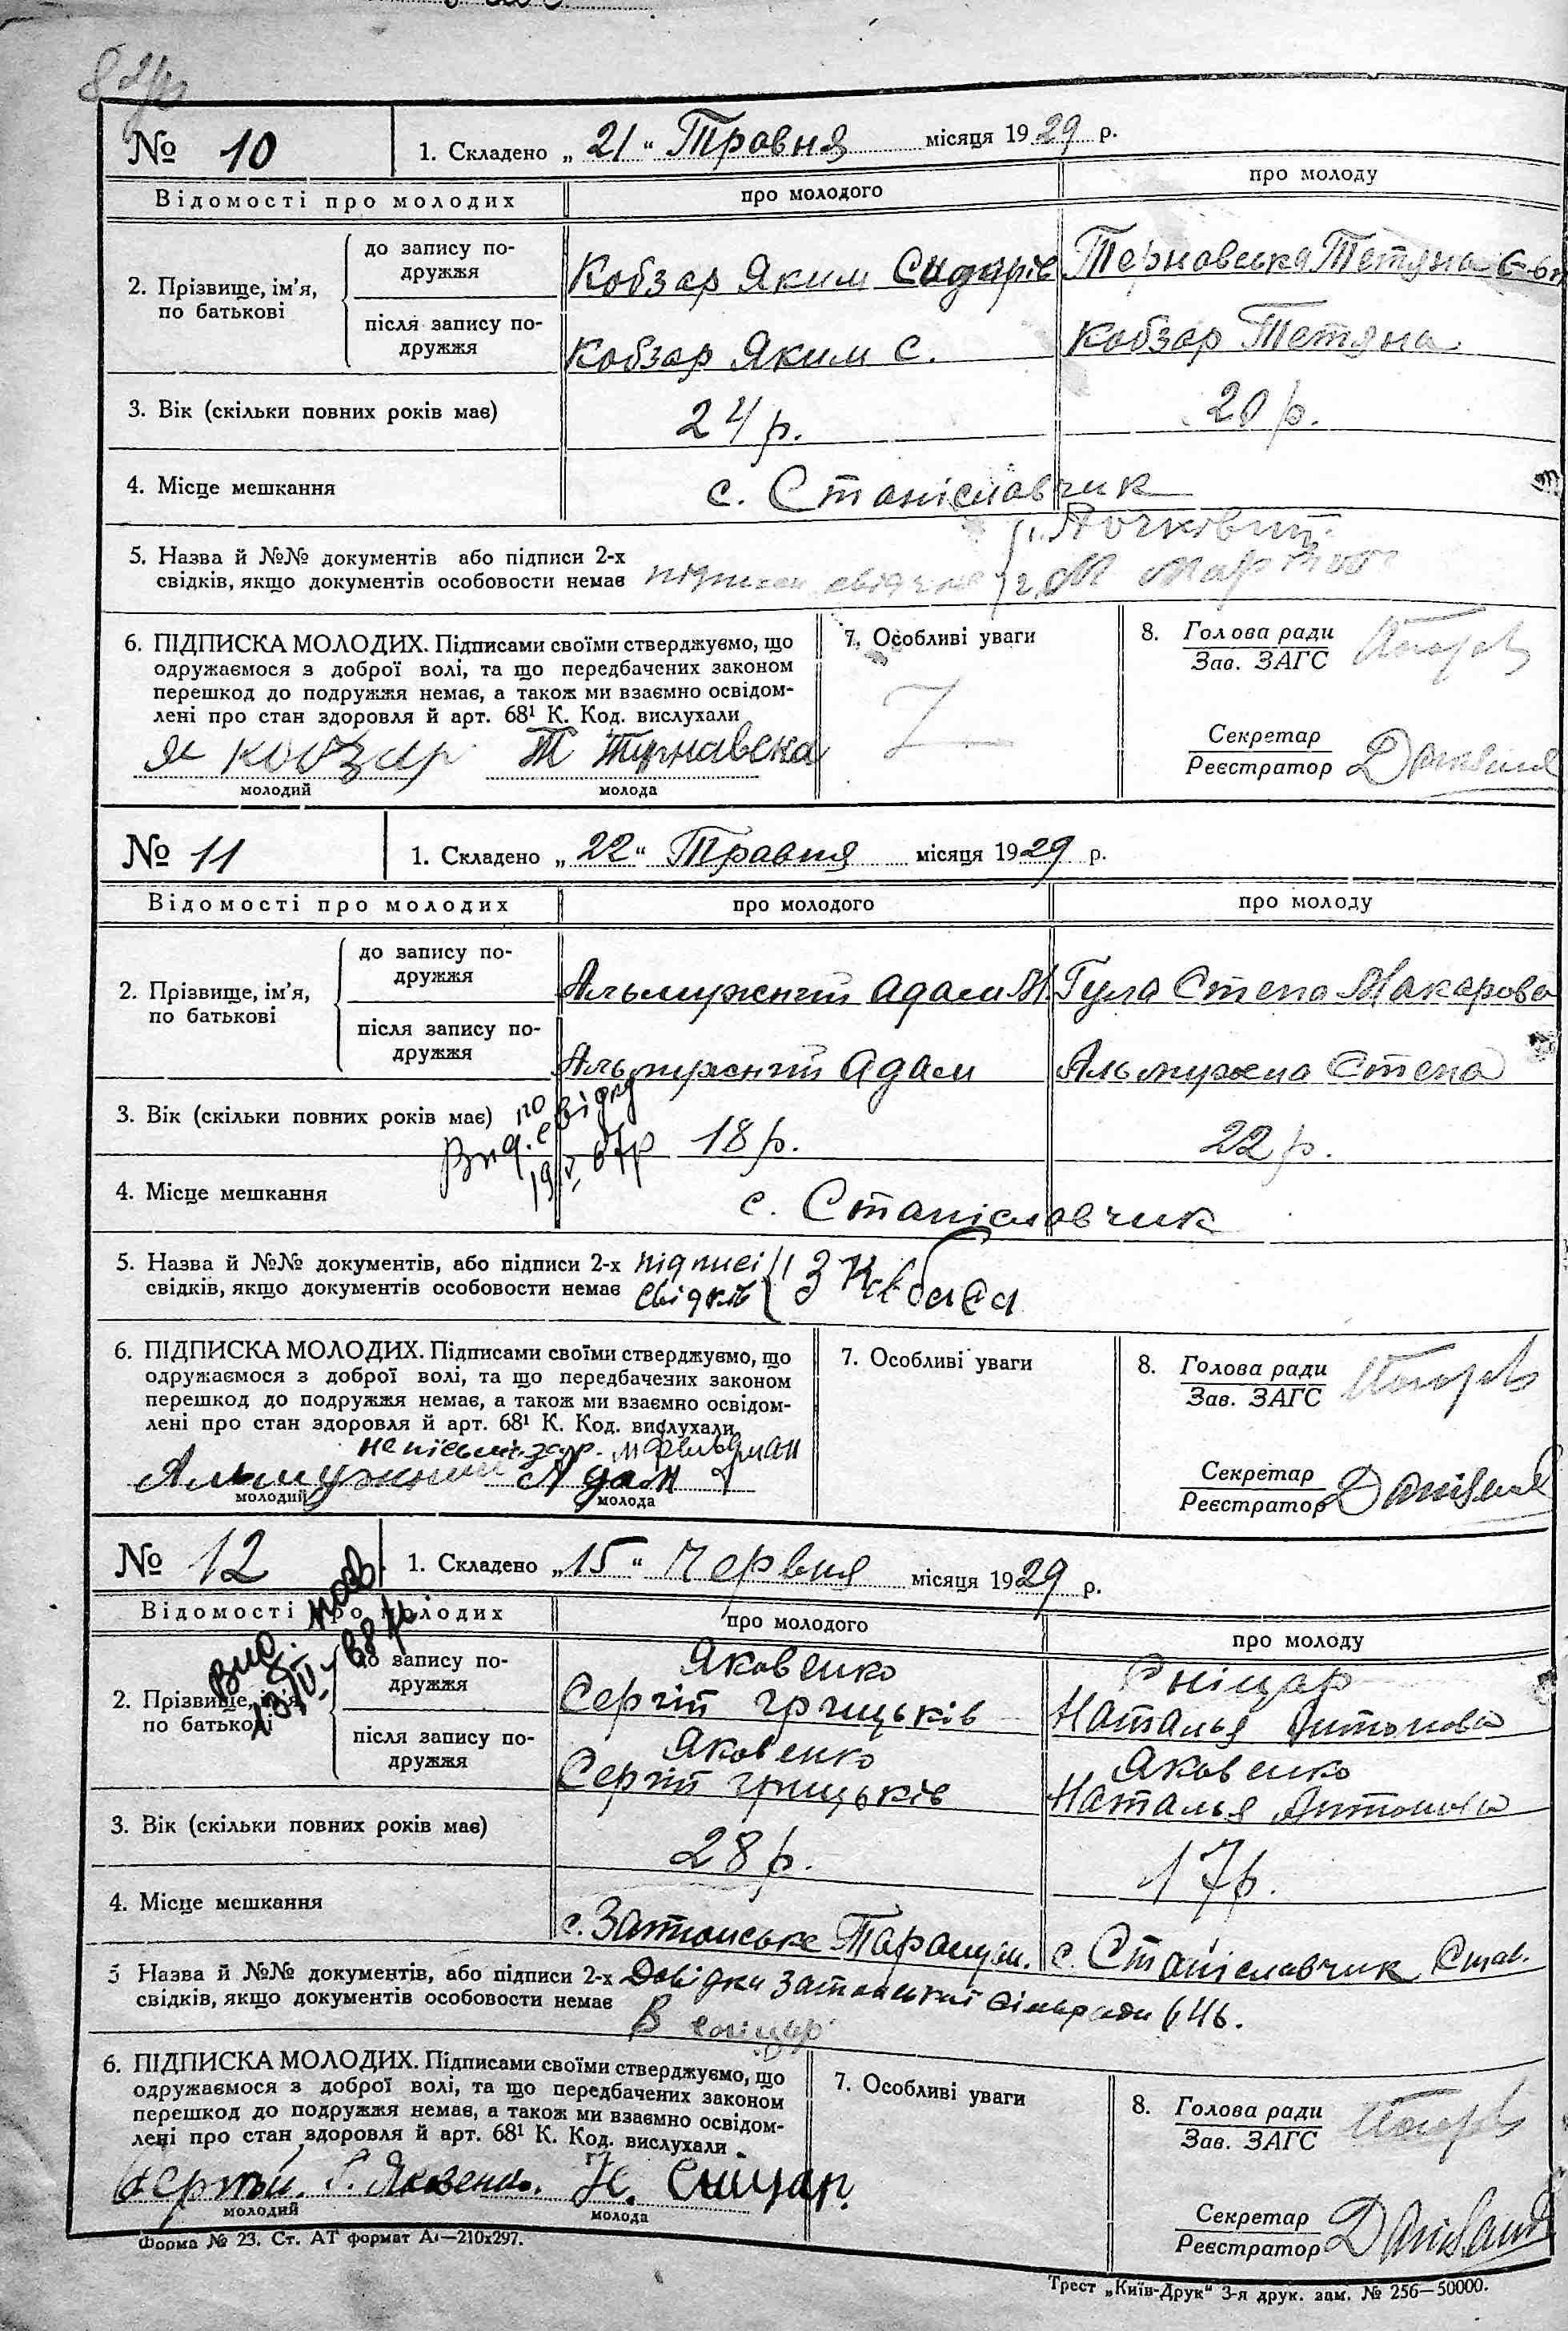 № 10
1. Складено „21“ Травня місяця 1929 р.
Відомості про молодих
про молодого
про молоду
2. Прізвище, ім’я, по батькові
до запису подружжя
Кобзар Яким Сидорів
Терновська Тетяна
після запису подружжя
Кобзар Яким С.
Кобзар Тетяна
3. Вік (скільки повних років має)
24 р.
20 р.
4. Місце мешкання
с. Станіславчик
5. Назва й №№ документів або підписи 2-х
свідків, якщо документів особовости немає
підписи свідків
6. ПІДПИСКА МОЛОДИХ. Підписами своїми стверджуємо, що
одружаємося з доброї волі, та що передбачених законом
перешкод до подружжя немає, а також ми взаємно освідом-
лені про стан здоровля й арт. 68¹ К. Код. вислухали
Як Кобзар
Т Тернавска
молодий
молода
7. Особливі уваги
8. Голова ради
Зав. ЗАГС
Секретар
Реєстратор
№ 11
1. Складено „22“ Травня місяця 1929 р.
Відомості про молодих
про молодого
про молоду
2. Прізвище, ім’я, по батькові
до запису подружжя
Альмужний Адам М.
Гула Степа Макарова
після запису подружжя
Альмужний Адам
Альмужна Степа
3. Вік (скільки повних років має)
18 р.
22 р.
4. Місце мешкання
с. Станіславчик
5. Назва й №№ документів, або підписи 2-х
свідків, якщо документів особовости немає
підписі
свідків
6. ПІДПИСКА МОЛОДИХ. Підписами своїми стверджуємо, що
одружаємося з доброї волі, та що передбачених законом
перешкод до подружжя немає, а також ми взаємно освідом-
лені про стан здоровля й арт. 68¹ К. Код. вислухали
Альмужний Адам
молодий
молода
7. Особливі уваги
8. Голова ради
Зав. ЗАГС
Секретар
Реєстратор
№ 12
1. Складено „15“ Червня місяця 1929 р.
Відомості про молодих
про молодого
про молоду
2. Прізвище, ім’я, по батькові
до запису подружжя
Яковенко
Сергій Грицьків
Сніцар
Наталья Антонова
після запису подружжя
Яковенко
Сергій Грицьків
Яковенко
Наталья Антонова
3. Вік (скільки повних років має)
28 р.
17 р.
4. Місце мешкання
с. Затонське Таращан.
с. Станіславчик Став.
5 Назва й №№ документів, або підписи 2-х
свідків, якщо документів особовости немає
Довідки Затонської сільради
В Сніцар
6. ПІДПИСКА МОЛОДИХ. Підписами своїми стверджуємо, що
одружаємося з доброї волі, та що передбачених законом
перешкод до подружжя немає, а також ми взаємно освідом-
лені про стан здоровля й арт. 68¹ К. Код. вислухали
Г. Яковенко.
Н. Сніцар.
молодий
молода
7. Особливі уваги
8. Голова ради
Зав. ЗАГС
Секретар
Реєстратор
Форма № 23. Ст. АТ формат А₄—210х297.
Трест „Київ-Друк“ 3-я друк. зам. № 256—50000.